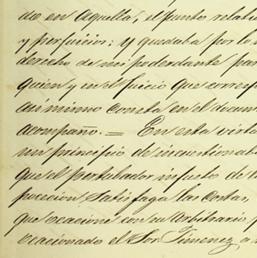 do en aquella, el punto relati
y perfuicios: y quedaba por lo
derecho de mi poderdante par
quien y en el juicio que corres
asi mismo consta en el docum
acompaño. = En esta virtu
un principio de incuestionab
que el perturbador injusto de la
posecion, satisfaga las costas,
que ocacione con su arbitrario p
ocacionado el Sor. Jimenez, a